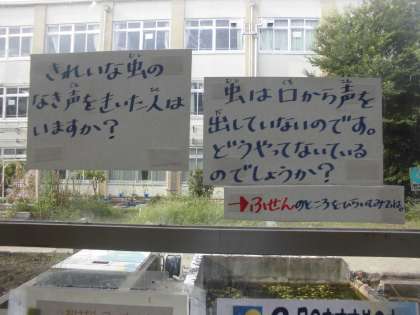 きれいな虫の
なき声をきいた人は
いますか？
虫は口から声を
出していないのです。
どうやってないている
のでしょうか？
→ふせんのところをひらいてみてね。